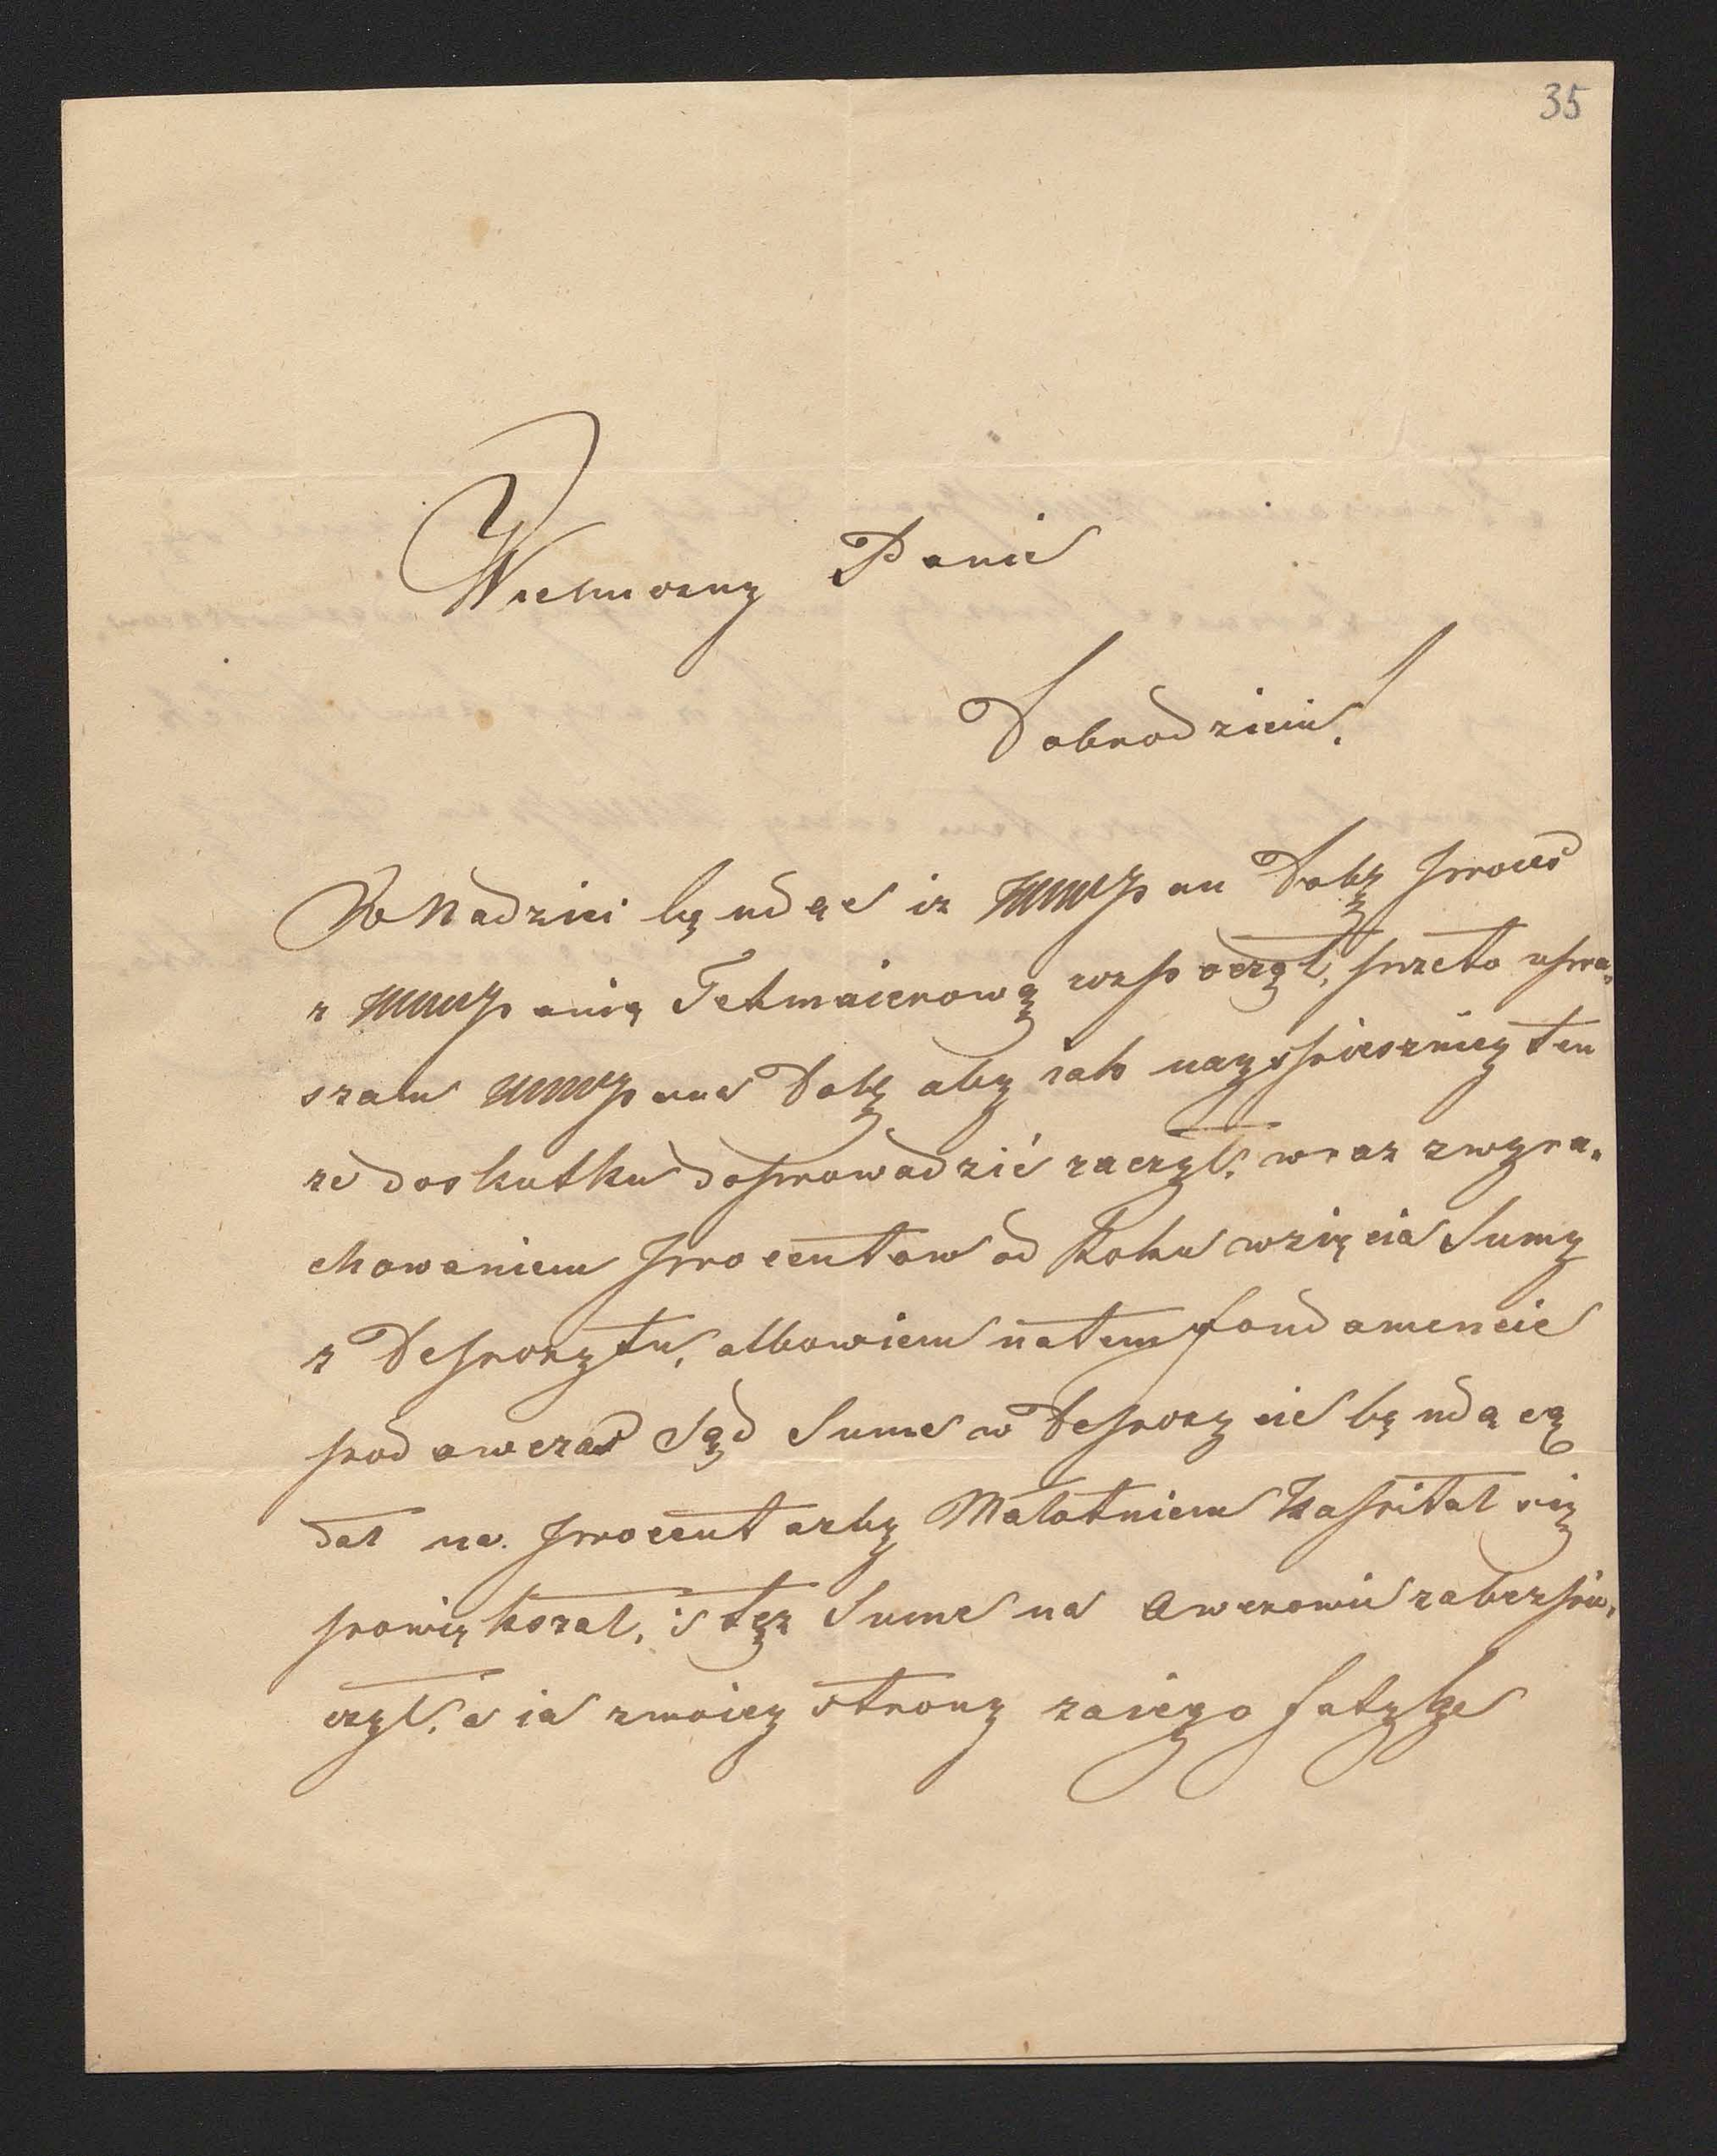 35
Wielmozny Panie
Dobrodzieiu!
W Nadziei będąc iz WWPan Dobr proces
z WWPanią Tetmaierową rozpoczął, przeto upra„
szam WWPana Dobr aby iak nayspieszniey ten
ze do skutku doprowadzić raczył. wraz z wyra„
chowaniem procentow od Roku wzięcia Sumy
z Depozytu, albowiem na tem fondamencie
podowczas Sąd Sume w Depozycie będącą
dał na procent azby Małotniem Kapitał się
powiękozał, i tęz Sume na Awerowie zabezpie„
czył. a ia z moiey strony za iego fatyge